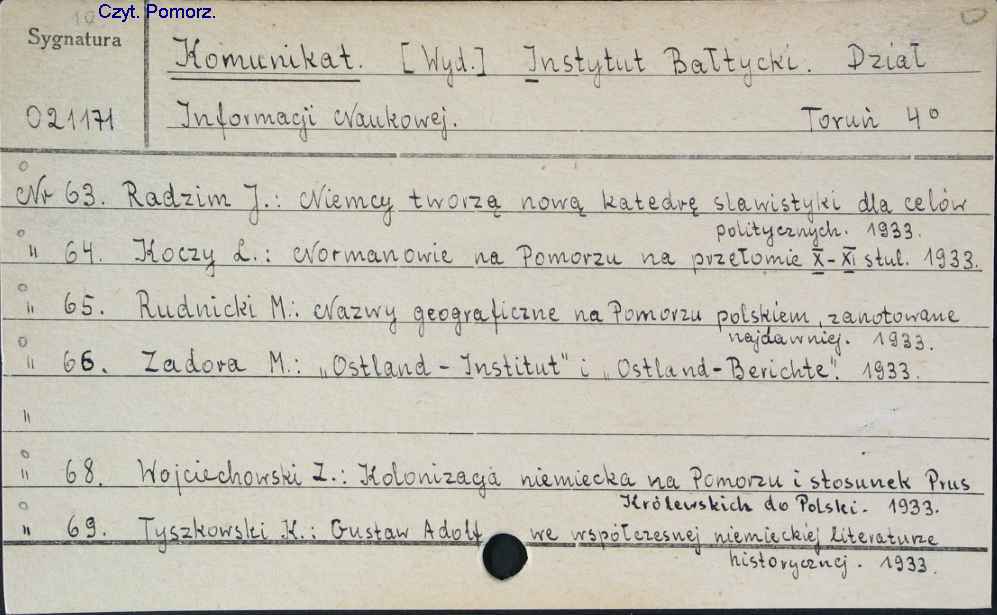 Czyt. Pomorz.
Sygnatura
Komunikat. [Wyd.] Instytut Bałtycki. Dział
021171 Informacji Naukowej. Toruń 4°
Nr 63. Radzim J.: Niemcy tworzą nową katedrę slawistyki dla celów
politycznych. 1933.
" 64. Koczy L.: Normanowie na Pomorzu na przełomie X-XI stul. 1933.
" 65. Rudnicki M.: Nazwy geograficzne na Pomorzu polskiem, zanotowane
najdawniej. 1933.
" 66. Zadora M.: „Ostland - Institut" i „Ostland-Berichte". 1933.
"
" 68. Wojciechowski Z.: Kolonizacja niemiecka na Pomorzu i stosunek Prus
Królewskich do Polski. 1933.
" 69. Tyszkowski K.: Gustaw Adolf we współczesnej niemieckiej literaturze
historycznej. 1933.